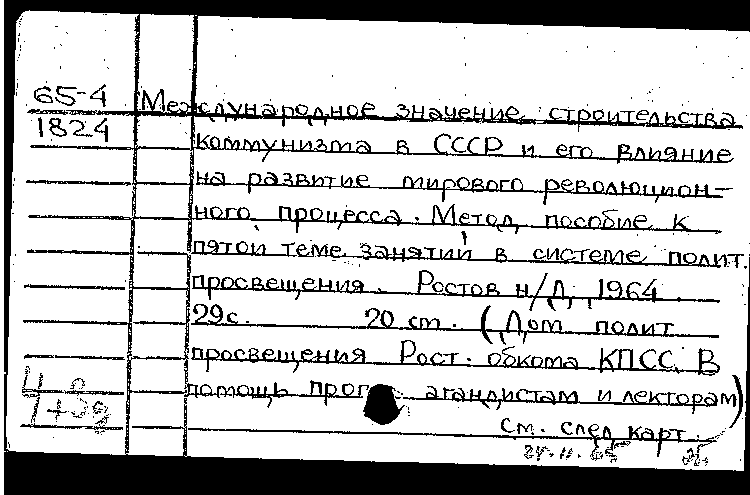 65-4 Международное значение строительства
1824 коммунизма в СССР и его влияние
на развитие мирового революцион-
ного процесса. Метод. пособие к
пятой теме занятий в системе полит.
просвещения. Ростов н/Д, 1964.
29с. 20 см. (Дом полит.
просвещения Рост. обкома КПСС. В
помощь пропагандистам и лекторам)
см. след. карт.